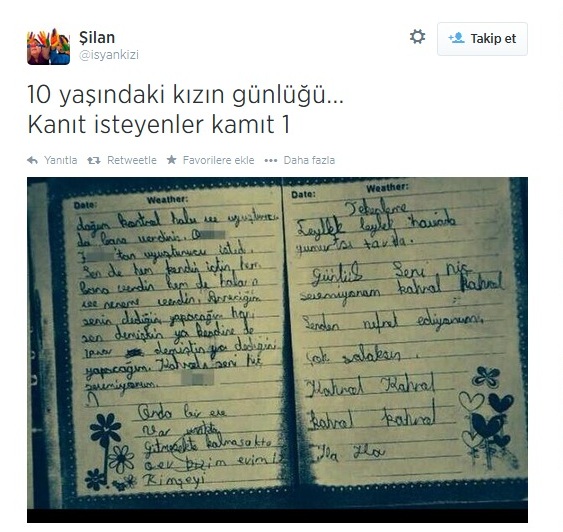 Şilan
@isyankizi
Takip et
10 yaşındaki kızın günlüğü...
Kanıt isteyenler kamıt 1
Yanıtla Retweetle Favorilere ekle Daha fazla
Date: Weather:
ve uyuşturucu
da bana verdiniz. O
tan uyuşturucu istedi.
Sen de hem kendin için hem
bana verdin hem de
ve neneme verdin. Anneciğim
senin dediğin yapacağım
sen demiştin ya kendine de
demiştin ya dediğini
yapacağım. seni hiç
sevmiyorum.
Orda bir ev
Var uzakta
Gitmesekte kalmasakta
o ev bizim evimiz
Kimseyi
Date: Weather:
Tekerleme
Leylek leylek havada
yumurtası tavada.
Günlük Seni hiç
sevmiyorum kahrol Kahrol
Senden nefret ediyorum.
Çok salaksın.
Kahrol Kahrol
kahrol kahrol
Ha Ha